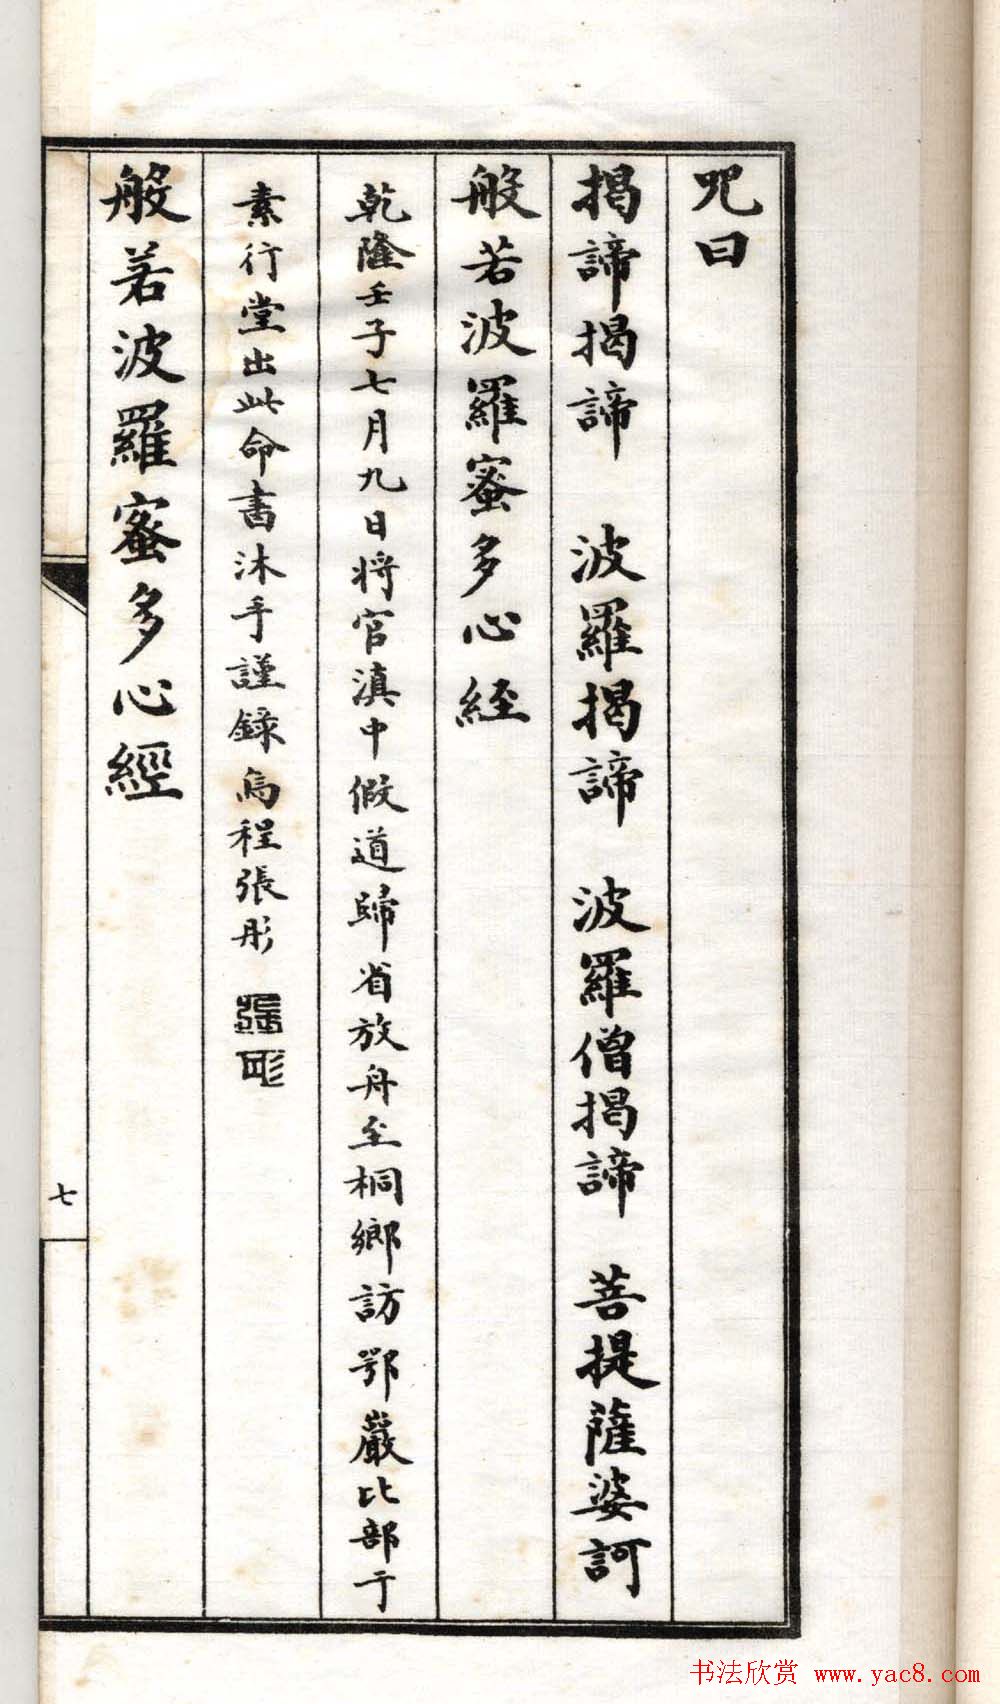 咒曰
揭諦揭諦 波羅揭諦 波羅僧揭諦 菩提薩婆訶
般若波羅蜜多心経
乾隆壬子七月九日將官滇中假道歸省放舟至桐鄉訪鄂巖比部于
素行堂出此命書沐手謹錄烏程張彤 張彤
般若波羅蜜多心經
七
书法欣赏 www.yac8.com